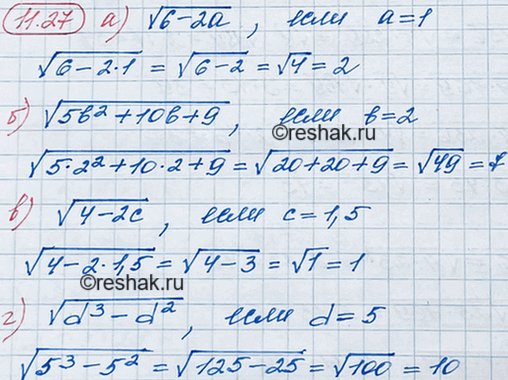 11.27 а) √(6-2a), если a=1
√(6-2·1) = √(6-2) = √4 = 2
б) √(5b²+10b+9), если b=2
©reshak.ru
√(5·2²+10·2+9) = √(20+20+9) = √49 = 7
в) √(4-2c), если c=1,5
√(4-2·1,5) = √(4-3) = √1 = 1
©reshak.ru
г) √(d³-d²), если d=5
√(5³-5²) = √(125-25) = √100 = 10